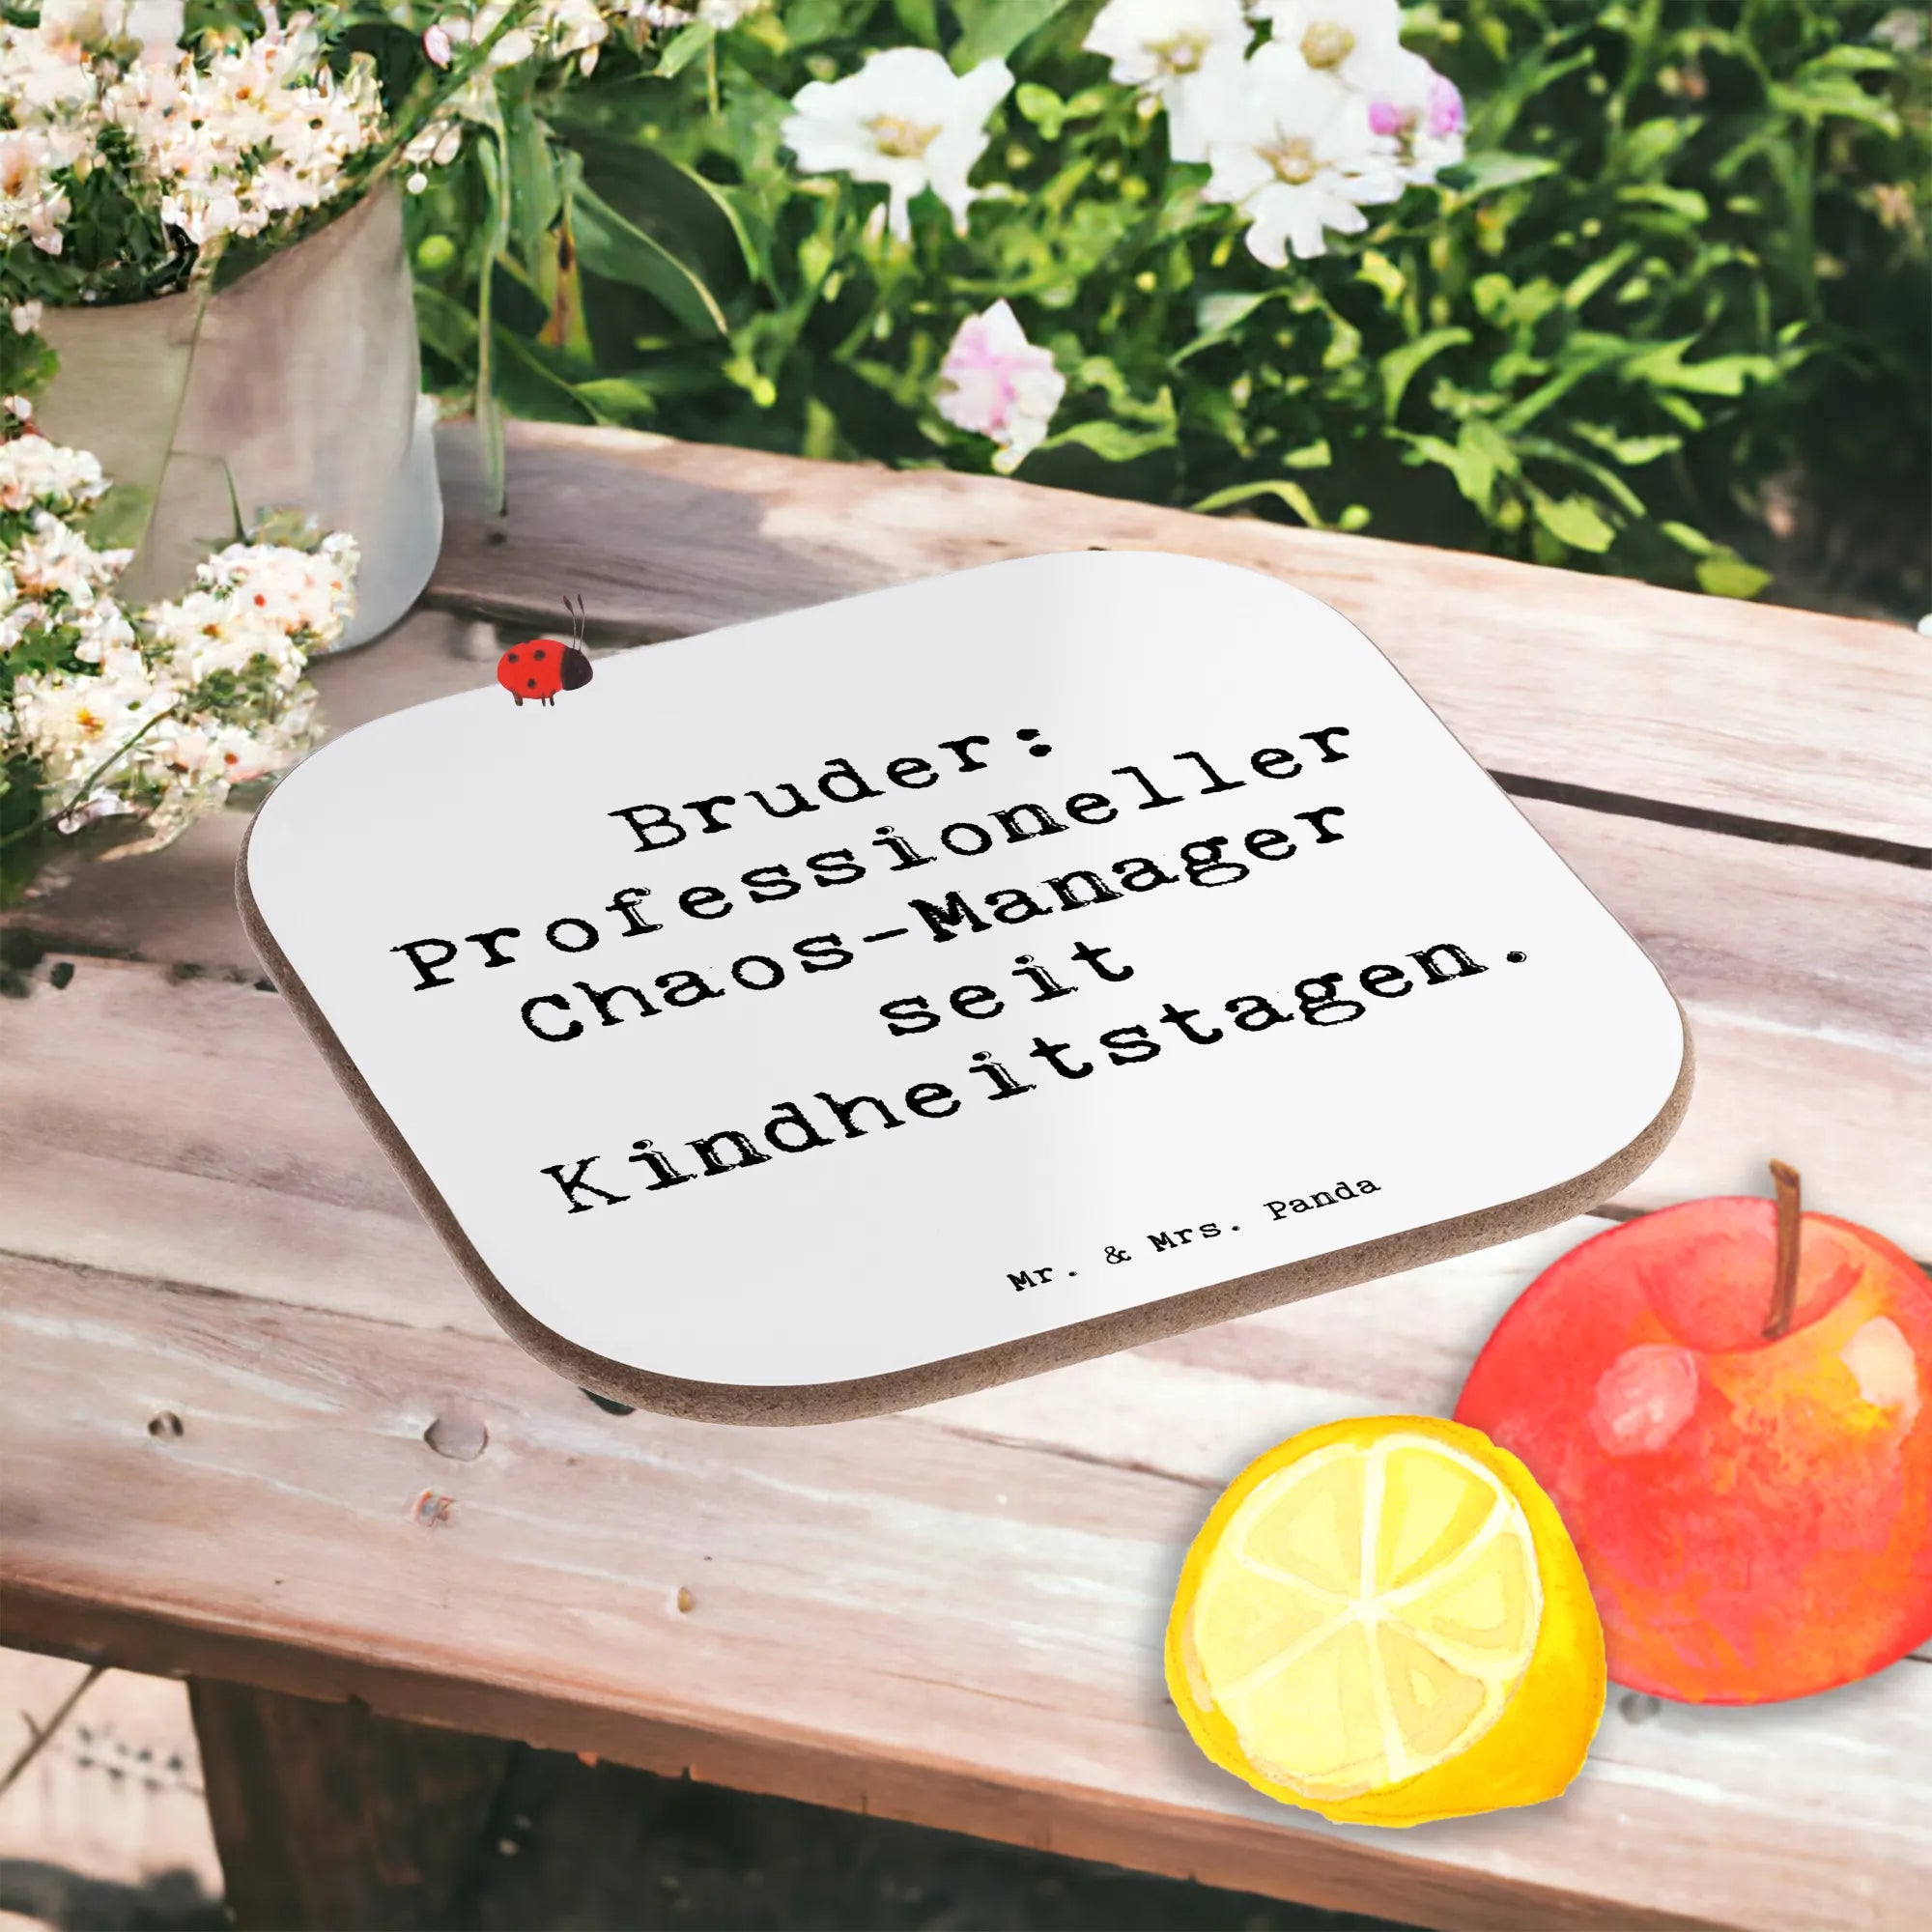 Bruder:
Professioneller
Chaos-Manager
seit
Kindheitstagen.
Mr. & Mrs. Panda